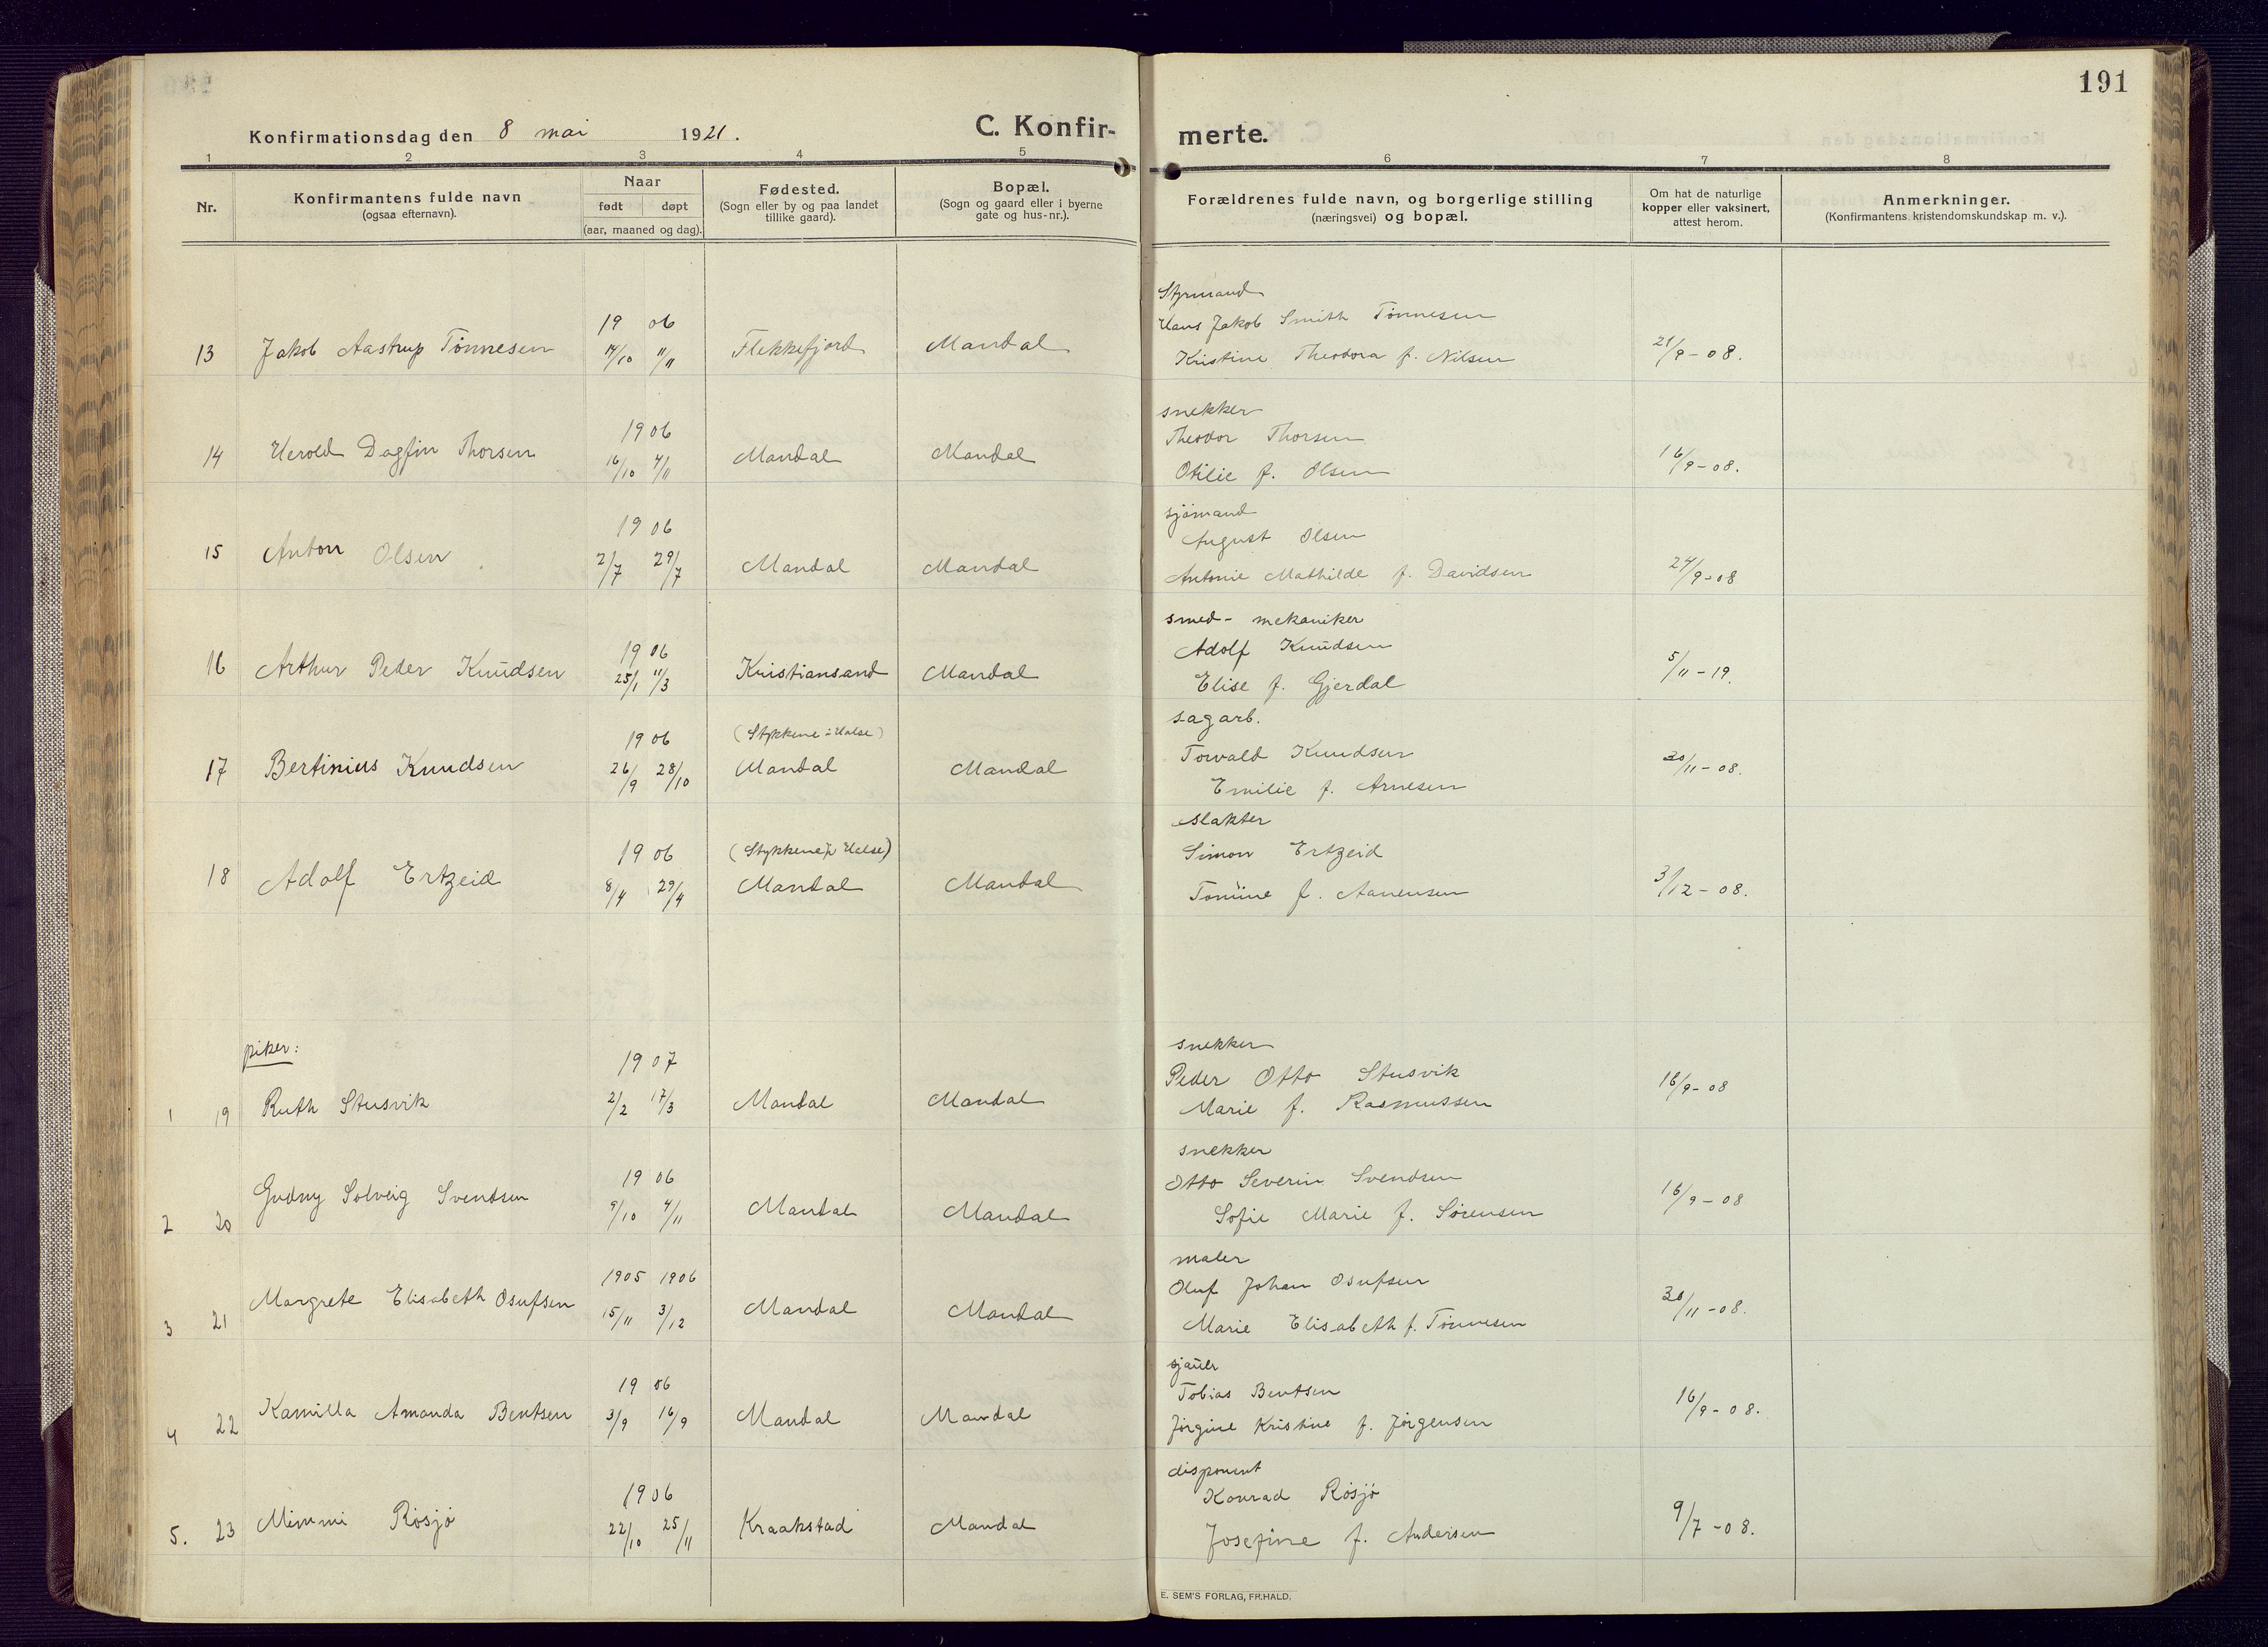 191
Konfirmationsdag den 8 mai 1921.
C. Konfirmerte.
1 2 3 4 5 6 7 8
Nr.
Konfirmantens fulde navn
(ogsaa efternavn).
Naar
født døpt
(aar, maaned og dag).
Fødested.
(Sogn eller by og paa landet
tillike gaard).
Bopæl.
(Sogn og gaard eller i byerne
gate og hus-nr.).
Forældrenes fulde navn, og borgerlige stilling
(næringsvei) og bopæl.
Om hat de naturlige
kopper eller vaksinert,
attest herom.
Anmerkninger.
(Konfirmantens kristendomskundskap m. v.).
Styrmand
19 06
Hans Jakob Smith Tønnesen
13 Jakob Aastrup Tönnesen 14/10 11/11 Flekkefjord Mandal
Kristine Theodora f. Nilsen 21/9-08.
snekker
19 06
Theodor Thorsen
14 Herold Dagfin Thorsen 16/10 4/11 Mandal Mandal
Otilie f. Olsen 16/9-08.
sjömand
19 06
August Olsen
15 Anton Olsen 2/7 29/7 Mandal Mandal
Antonie Mathilde f. Davidsen 24/9-08
smed- mekaniker
19 06
Adolf Knudsen
16 Arthur Peder Knudsen 25/1 11/3 Kristiansand Mandal
Elise f. Gjerdal 5/11-19.
sagarb.
19 06 (Stykkene i Halse)
Torvald Knudsen
17 Bertinius Knudsen 26/9 28/10 Mandal Mandal
Emilie f. Arnesen 20/11-08.
slakter
19 06 (Stykkene, Halse)
Simon Ertzeid
18 Adolf Ertzeid 8/4 29/4 Mandal Mandal
Tomine f. Aanensen 3/12-08.
piker:
snekker
19 07
Peder Otto Stusvik
1 19 Ruth Stusvik 2/2 17/3 Mandal Mandal
Marie f. Rasmussen 16/9-08
snekker
19 06
Otto Severin Svendsen
2 20 Gudny Solveig Svendsen 9/10 4/11 Mandal Mandal
Sofie Marie f. Sörensen 16/9-08
maler
1905 1906
Oluf Johan Osufsen
3 21 Margrete Elisabeth Osufsen 15/11 3/12 Mandal Mandal
Marie Elisabeth f. Tönnesen 30/11-08.
sjauer
19 06
Tobias Bentsen
4 22 Kamilla Amanda Bentsen 3/9 16/9 Mandal Mandal
Jørgine Kristine f. Jørgensen 16/9-08.
disponent
19 06
Konrad Røsjø
5. 23 Mimmi Røsjø 22/10 25/11 Kraakstad Mandal
Josefine f. Andersen 9/7-08.
E. SEM'S FORLAG, FR.HALD.